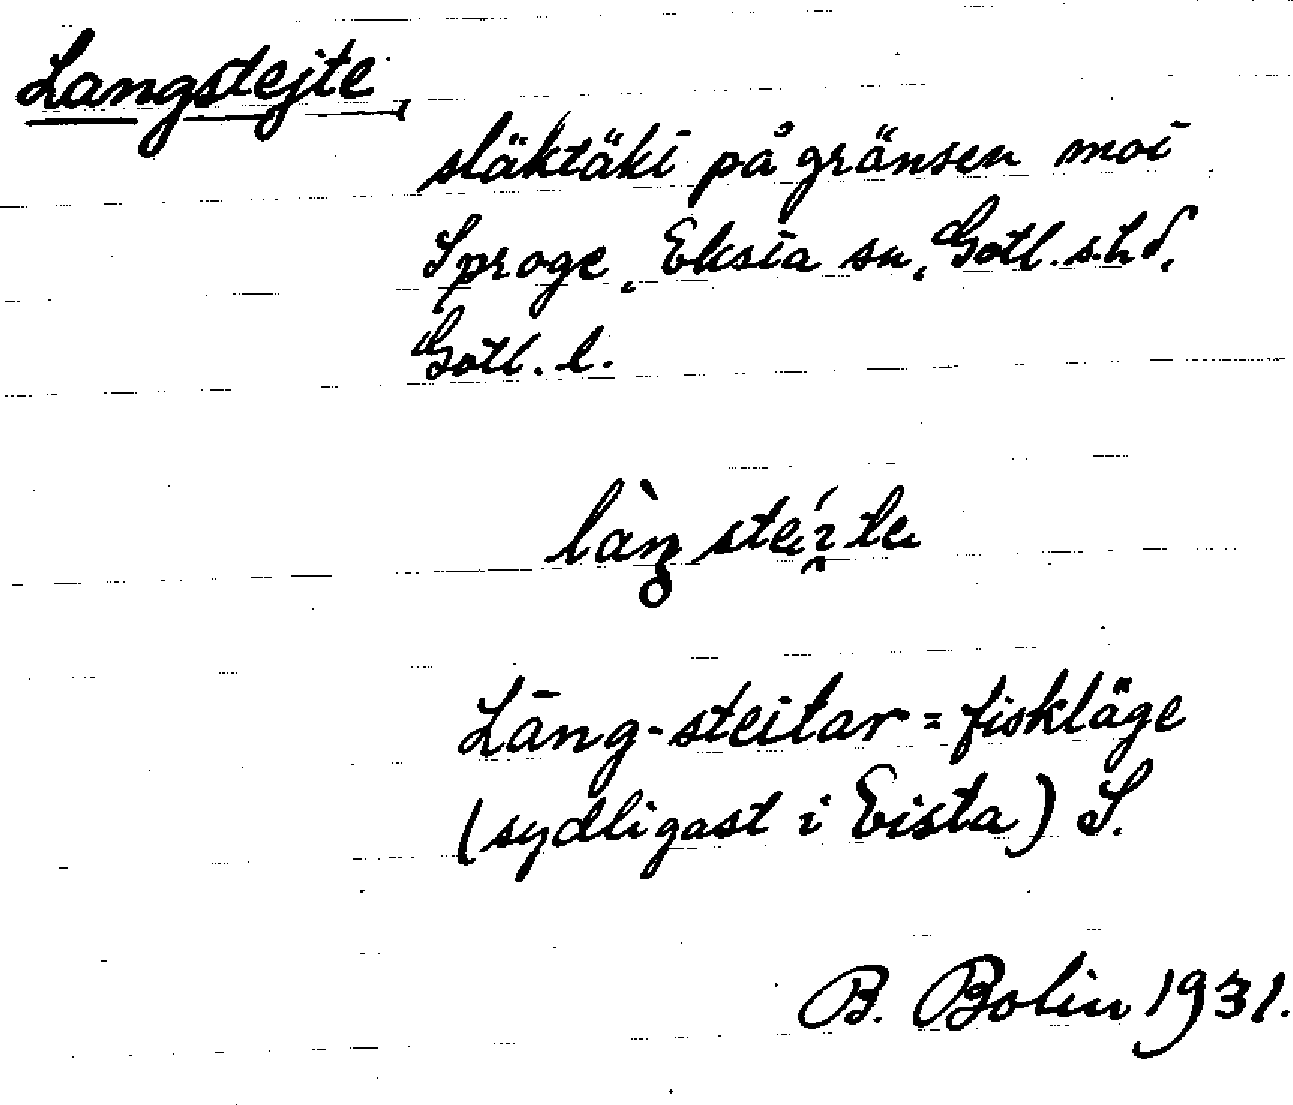 Langstejte,
släktäki på gränsen mot
Sproge, Eksta sn, Gotl. s. hd,
Gotl. l.
Lāng-steitar = fiskläge
(sydligast i Eista) S.
B. Bolin 1931.